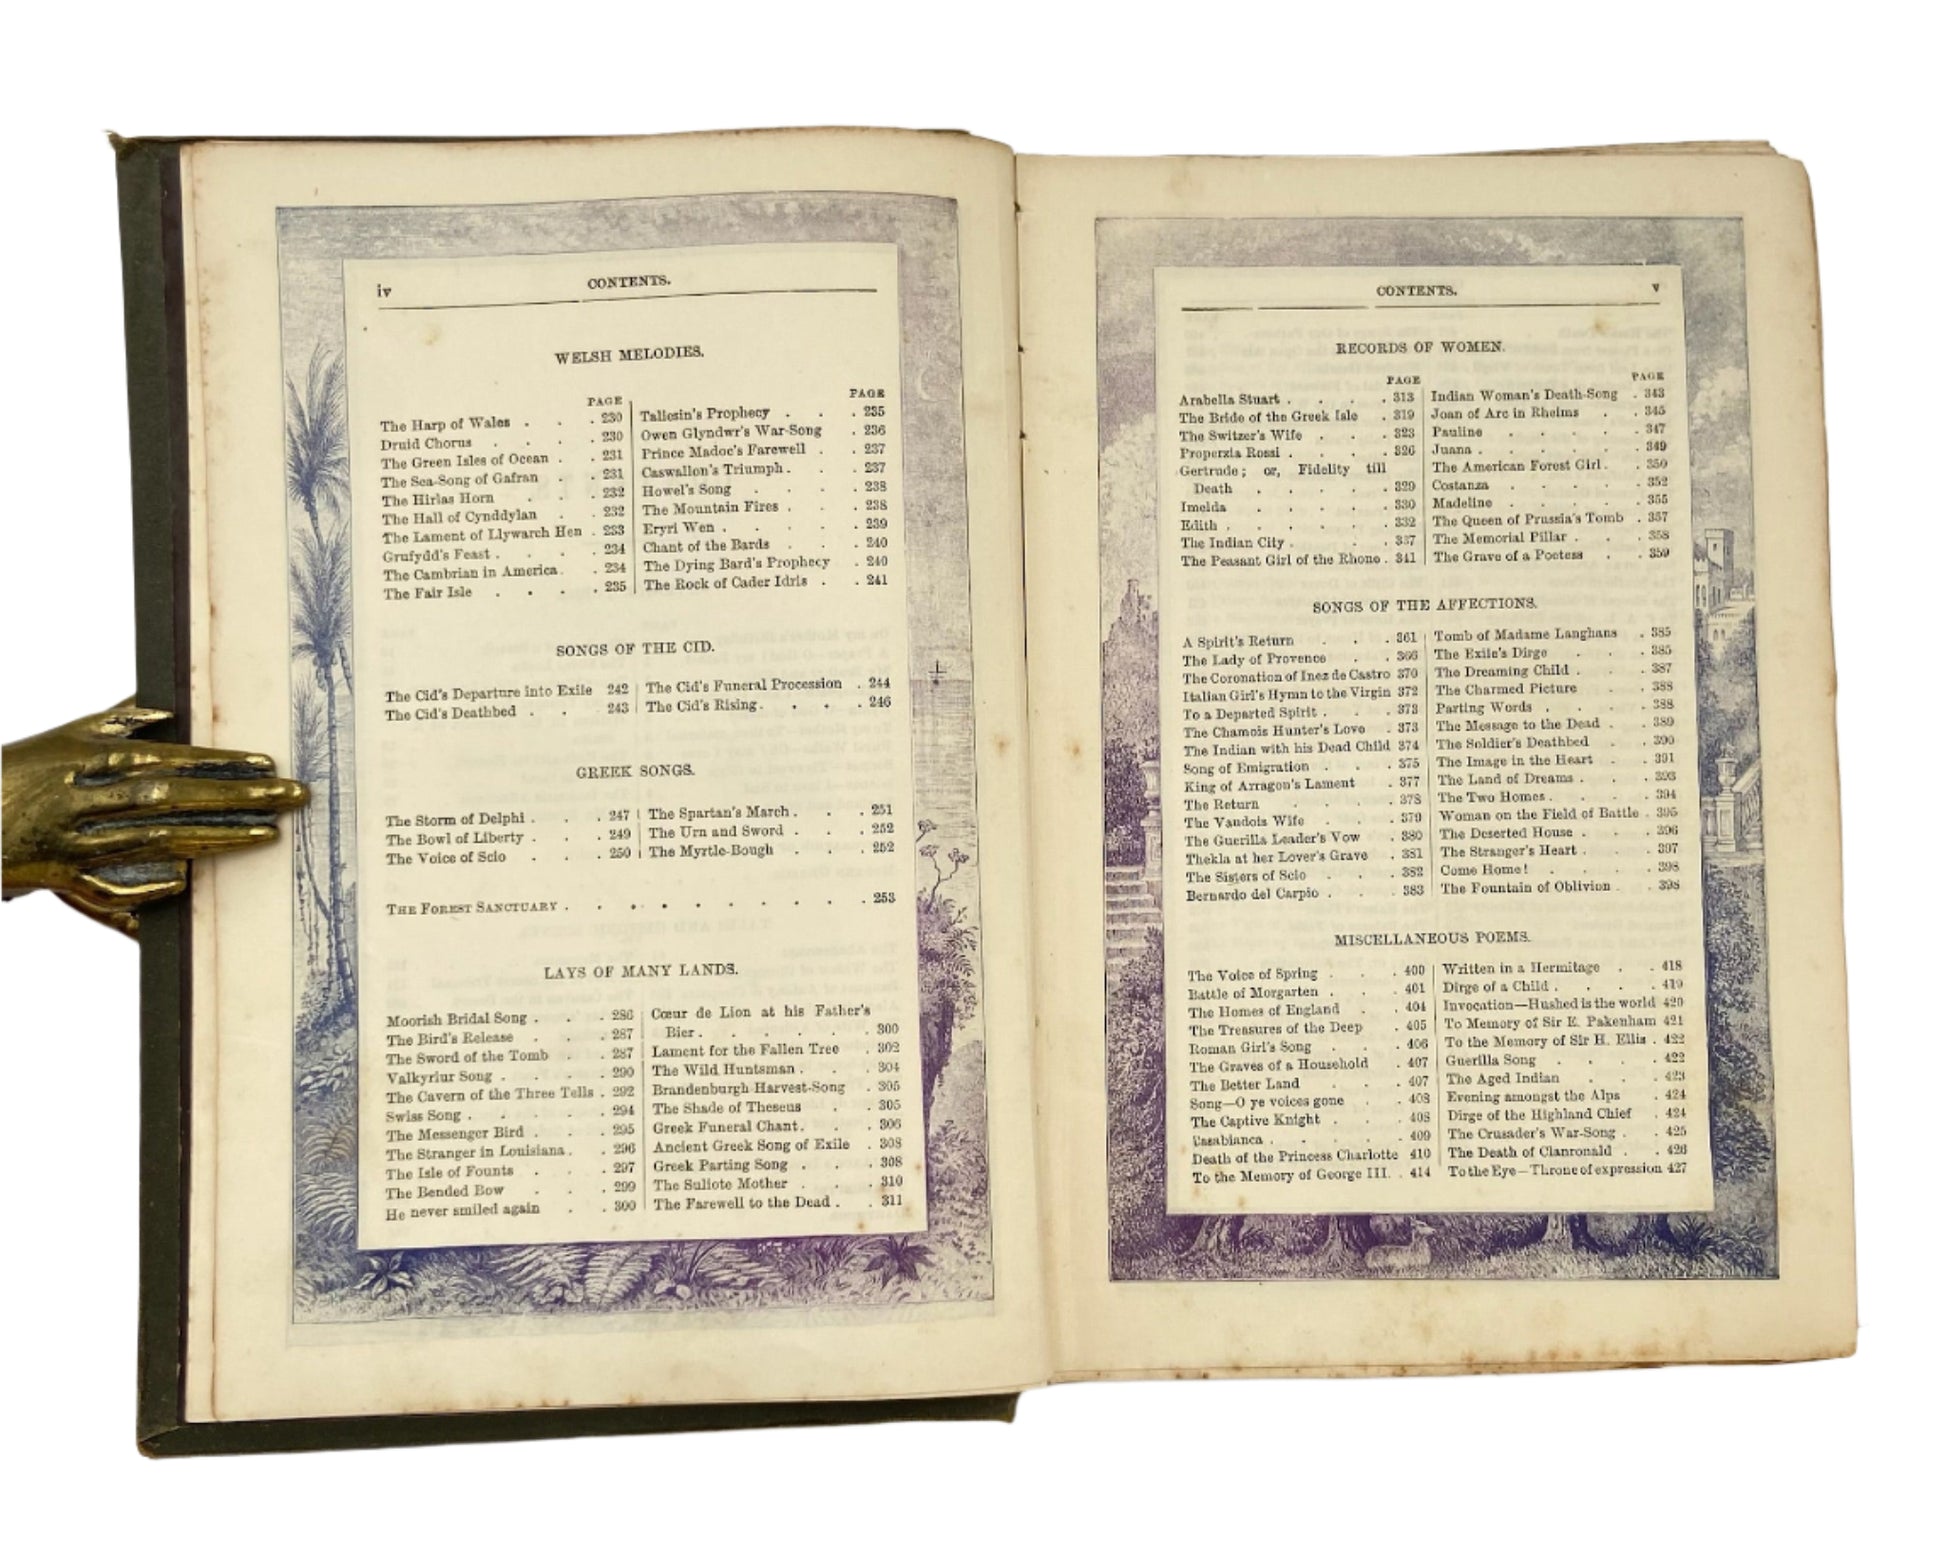 iv CONTENTS.
WELSH MELODIES.
PAGE
The Harp of Wales . . . 230
Druid Chorus . . . . 230
The Green Isles of Ocean . . 231
The Sea-Song of Gafran . . 231
The Hirlas Horn . . . 232
The Hall of Cynddylan . . 232
The Lament of Llywarch Hen . 233
Grufydd's Feast . . . . 234
The Cambrian in America . . 234
The Fair Isle . . . . 235
PAGE
Taliesin's Prophecy . . . 235
Owen Glyndwr's War-Song . 236
Prince Madoc's Farewell . . 237
Caswallon's Triumph . . . 237
Howel's Song . . . . 238
The Mountain Fires . . . 238
Eryri Wen . . . . . 239
Chant of the Bards . . . 240
The Dying Bard's Prophecy . 240
The Rock of Cader Idris . . 241
SONGS OF THE CID.
The Cid's Departure into Exile 242
The Cid's Deathbed . . . 243
The Cid's Funeral Procession . 244
The Cid's Rising . . . . 246
GREEK SONGS.
The Storm of Delphi . . . 247
The Bowl of Liberty . . . 249
The Voice of Scio . . . 250
The Spartan's March . . . 251
The Urn and Sword . . . 252
The Myrtle-Bough . . . 252
THE FOREST SANCTUARY . . . . . . . . . . 253
LAYS OF MANY LANDS.
Moorish Bridal Song . . . 286
The Bird's Release . . . 287
The Sword of the Tomb . . 287
Valkyriur Song . . . . 290
The Cavern of the Three Tells . 292
Swiss Song . . . . . 294
The Messenger Bird . . . 295
The Stranger in Louisiana . . 296
The Isle of Founts . . . 297
The Bended Bow . . . 299
He never smiled again . . 300
Cœur de Lion at his Father's
Bier . . . . . . 300
Lament for the Fallen Tree . 302
The Wild Huntsman . . . 304
Brandenburgh Harvest-Song . 305
The Shade of Theseus . . 305
Greek Funeral Chant . . . 306
Ancient Greek Song of Exile . 308
Greek Parting Song . . . 308
The Suliote Mother . . . 310
The Farewell to the Dead . . 311
CONTENTS. v
RECORDS OF WOMEN.
PAGE
Arabella Stuart . . . . 313
The Bride of the Greek Isle . 319
The Switzer's Wife . . . 323
Properzia Rossi . . . . 326
Gertrude; or, Fidelity till
Death . . . . . 329
Imelda . . . . . 330
Edith . . . . . . 332
The Indian City . . . . 337
The Peasant Girl of the Rhone . 341
PAGE
Indian Woman's Death-Song . 343
Joan of Arc in Rheims . . 345
Pauline . . . . . 347
Juana . . . . . . 349
The American Forest Girl . . 350
Costanza . . . . . 352
Madeline . . . . . 355
The Queen of Prussia's Tomb . 357
The Memorial Pillar . . . 358
The Grave of a Poetess . . 359
SONGS OF THE AFFECTIONS.
A Spirit's Return . . . 361
The Lady of Provence . . 366
The Coronation of Inez de Castro 370
Italian Girl's Hymn to the Virgin 372
To a Departed Spirit . . . 373
The Chamois Hunter's Love . 373
The Indian with his Dead Child 374
Song of Emigration . . . 375
King of Arragon's Lament . 377
The Return . . . . 378
The Vaudois Wife . . . 379
The Guerilla Leader's Vow . 380
Thekla at her Lover's Grave . 381
The Sisters of Scio . . . 382
Bernardo del Carpio . . . 383
Tomb of Madame Langhans . 385
The Exile's Dirge . . . 385
The Dreaming Child . . . 387
The Charmed Picture . . 388
Parting Words . . . . 388
The Message to the Dead . . 389
The Soldier's Deathbed . . 390
The Image in the Heart . . 391
The Land of Dreams . . . 393
The Two Homes . . . . 394
Woman on the Field of Battle . 395
The Deserted House . . . 396
The Stranger's Heart . . . 397
Come Home! . . . . 398
The Fountain of Oblivion . . 398
MISCELLANEOUS POEMS.
The Voice of Spring . . . 400
Battle of Morgarten . . . 401
The Homes of England . . 404
The Treasures of the Deep . 405
Roman Girl's Song . . . 406
The Graves of a Household . 407
The Better Land . . . 407
Song—O ye voices gone . . 408
The Captive Knight . . . 408
Casabianca . . . . . 409
Death of the Princess Charlotte 410
To the Memory of George III. . 414
Written in a Hermitage . . 418
Dirge of a Child . . . . 419
Invocation—Hushed is the world 420
To Memory of Sir E. Pakenham 421
To the Memory of Sir H. Ellis . 422
Guerilla Song . . . . 422
The Aged Indian . . . 423
Evening amongst the Alps . 424
Dirge of the Highland Chief . 424
The Crusader's War-Song . . 425
The Death of Clanronald . . 426
To the Eye—Throne of expression 427